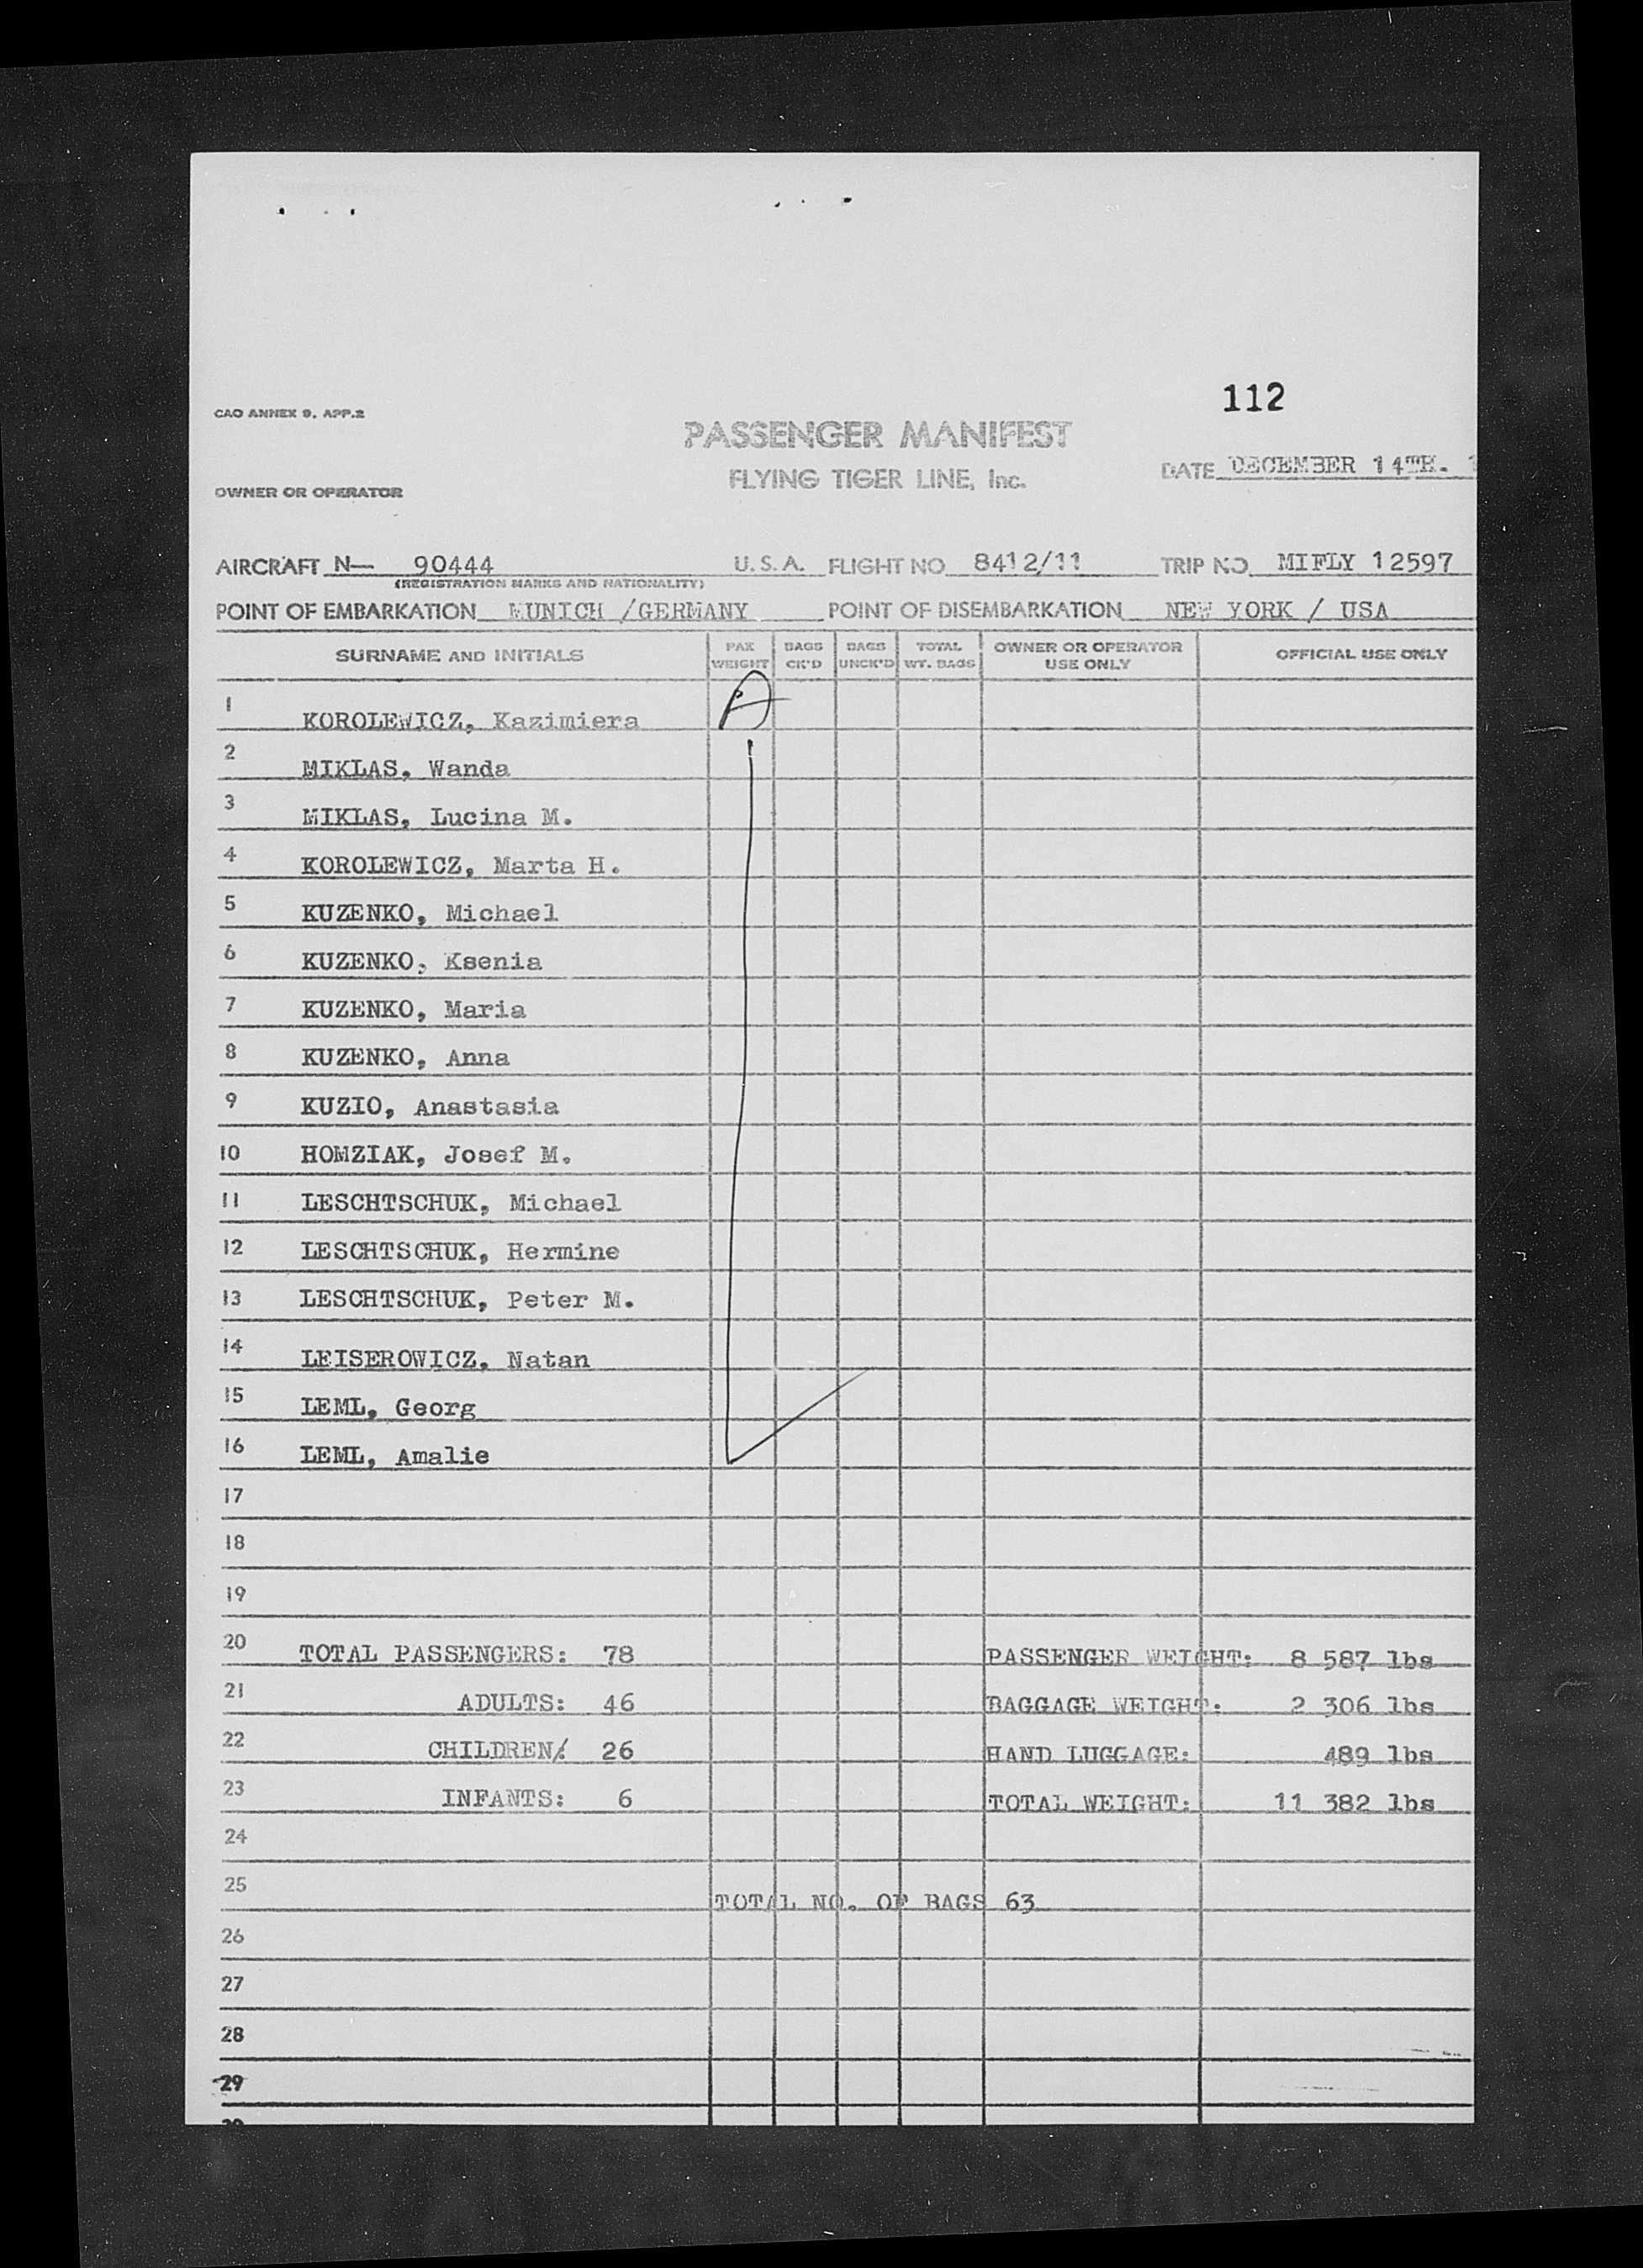 112
CAO ANNEX 9, APP.2
PASSENGER MANIFEST
FLYING TIGER LINE, Inc.
DATE DECEMBER 14TH. 1
OWNER OR OPERATOR
AIRCRAFT N— 90444 U.S.A. FLIGHT NO 8412/11 TRIP NO MIFLY 12597
(REGISTRATION MARKS AND NATIONALITY)
POINT OF EMBARKATION MUNICH /GERMANY POINT OF DISEMBARKATION NEW YORK / USA
SURNAME AND INITIALS PAX WEIGHT BAGS CK'D BAGS UNCK'D TOTAL WT. BAGS OWNER OR OPERATOR USE ONLY OFFICIAL USE ONLY
1 KOROLEWICZ, Kazimiera A
2 MIKLAS, Wanda
3 MIKLAS, Lucina M.
4 KOROLEWICZ, Marta H.
5 KUZENKO, Michael
6 KUZENKO, Ksenia
7 KUZENKO, Maria
8 KUZENKO, Anna
9 KUZIO, Anastasia
10 HOMZIAK, Josef M.
11 LESCHTSCHUK, Michael
12 LESCHTSCHUK, Hermine
13 LESCHTSCHUK, Peter M.
14 LEISEROWICZ, Natan
15 LEML, Georg
16 LEML, Amalie
17
18
19
20 TOTAL PASSENGERS: 78 PASSENGER WEIGHT: 8 587 lbs
21 ADULTS: 46 BAGGAGE WEIGHT: 2 306 lbs
22 CHILDREN: 26 HAND LUGGAGE: 489 lbs
23 INFANTS: 6 TOTAL WEIGHT: 11 382 lbs
24
25 TOTAL NO. OF BAGS 63
26
27
28
29